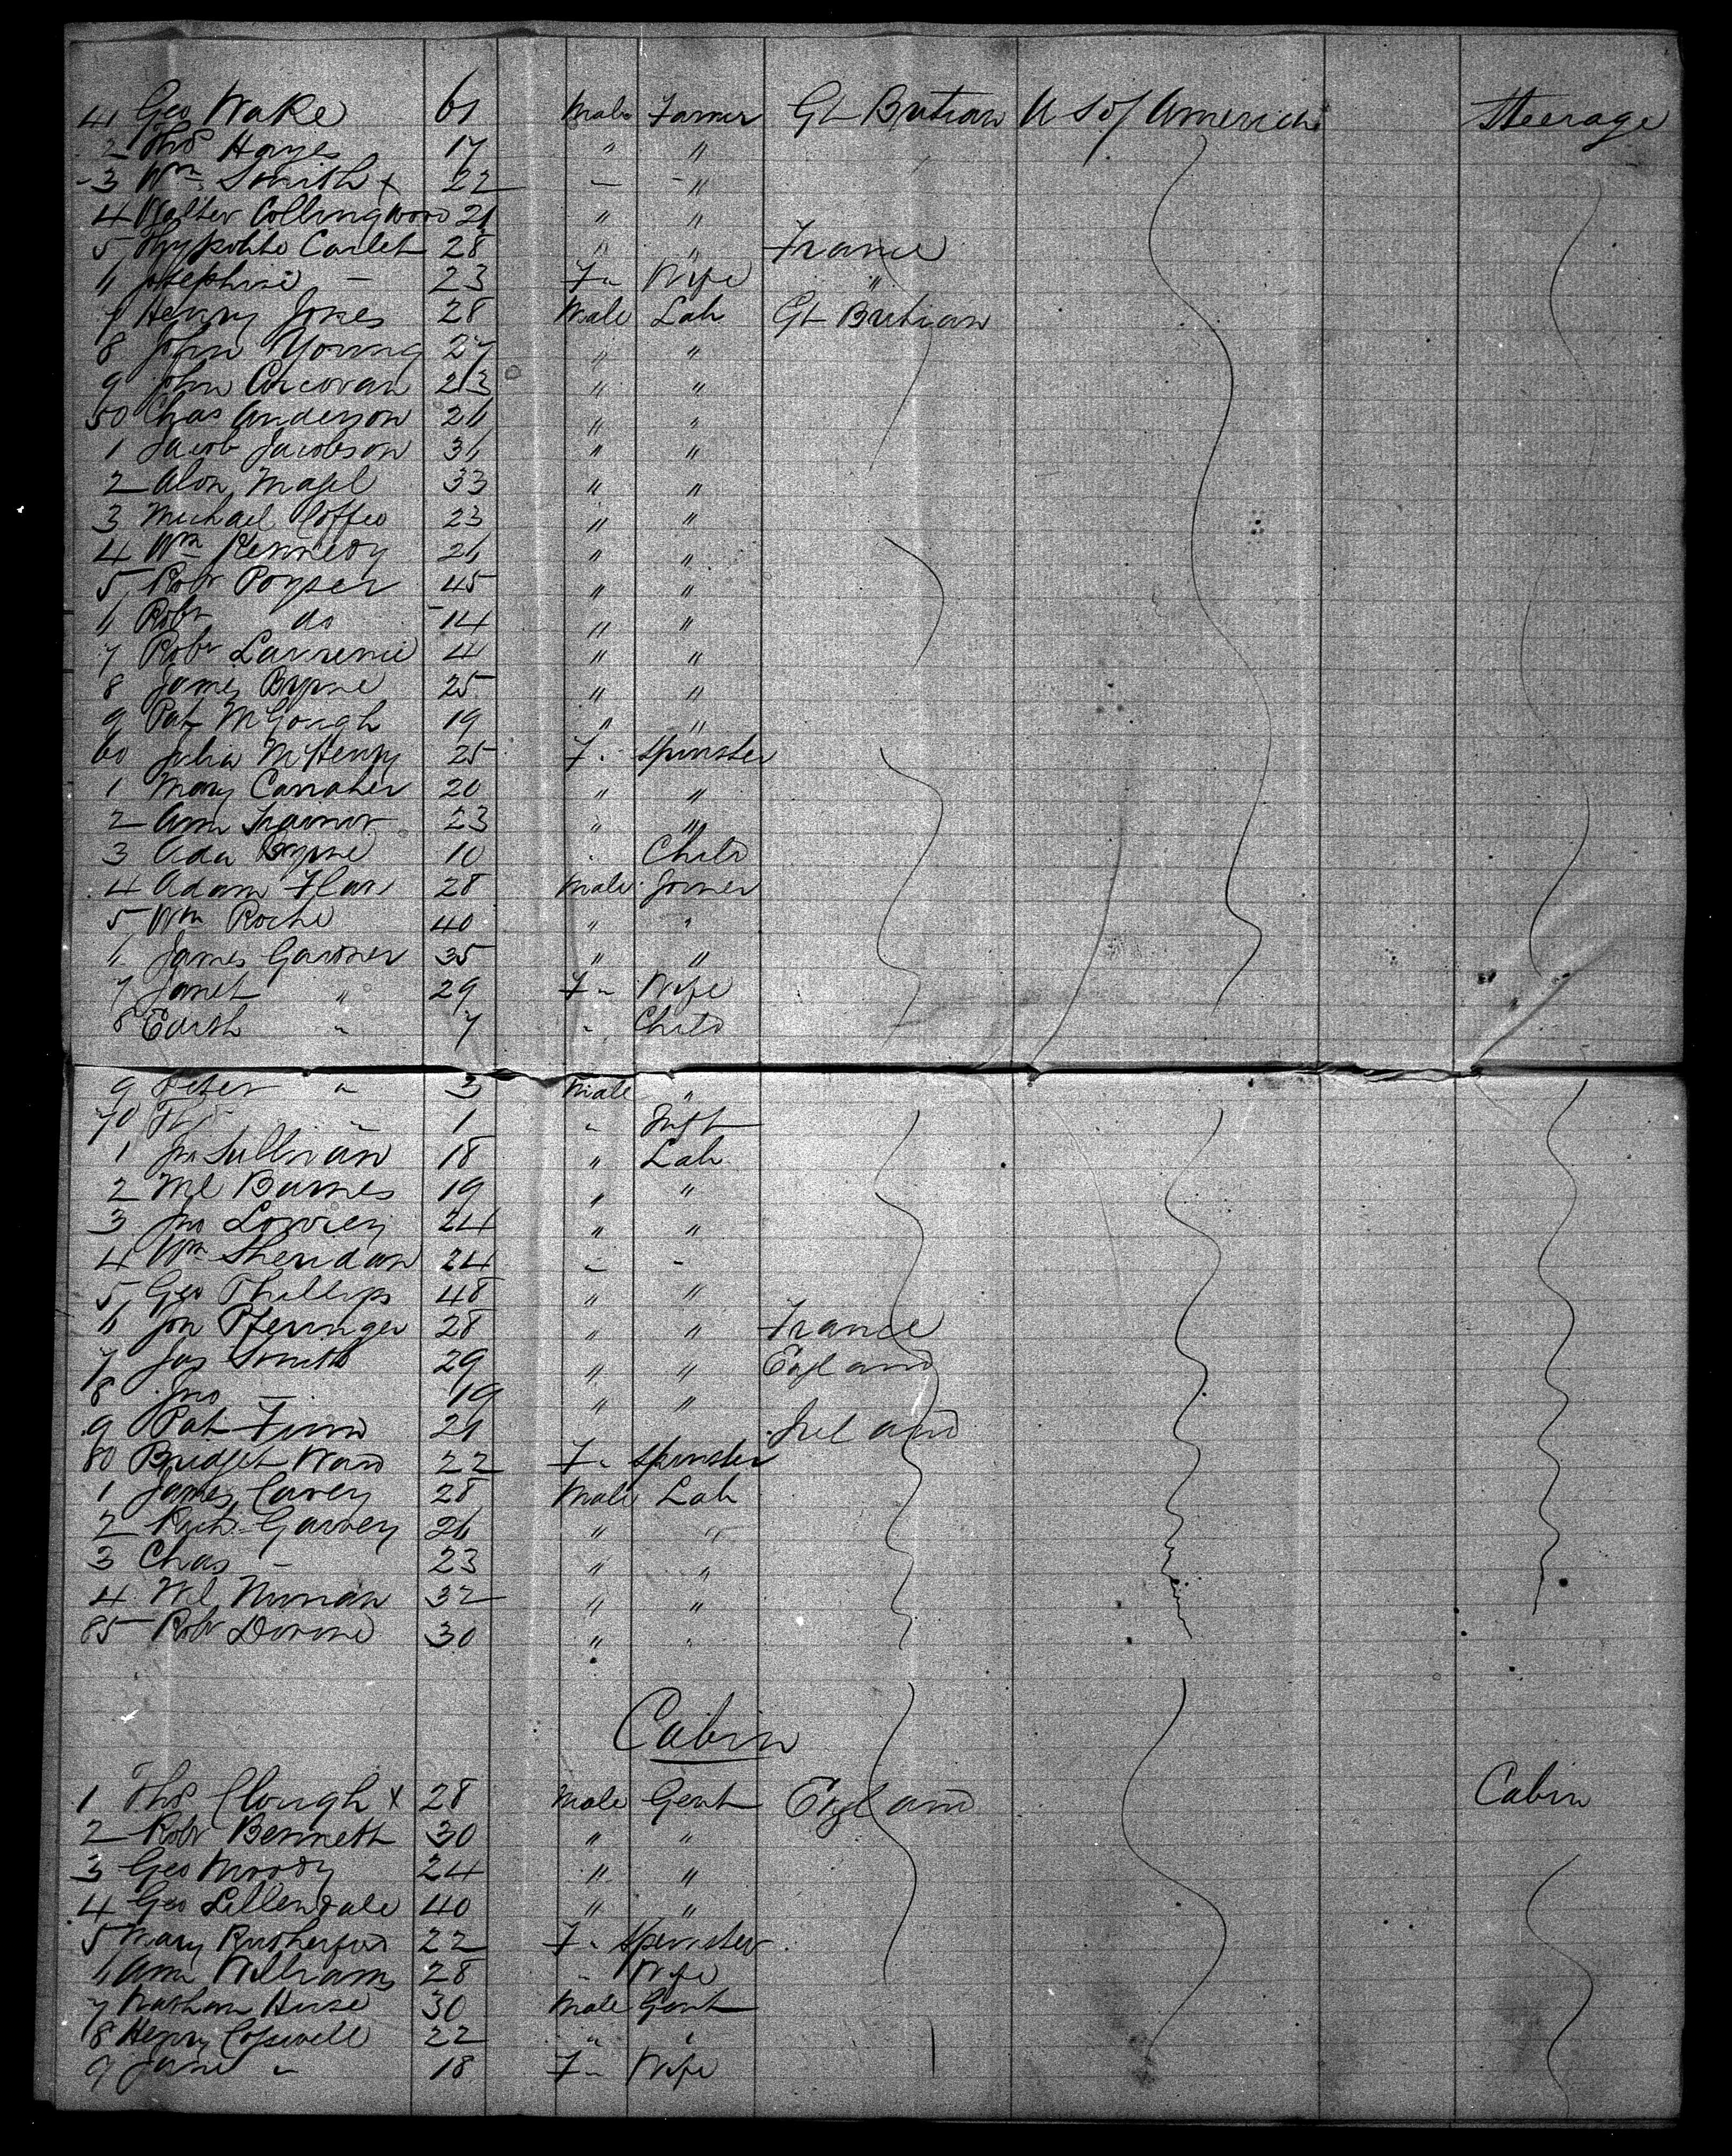 41 Geo Wake 61 Male Farmer Gt Britian U S of America Steerage
2 Thos Hayes 17 " "
3 Wm Smith x 22 — "
4 Walter Collingwood 21 " "
5 Hyppolite Carlet 28 " " France
6 Josephine — 23 F " Wife "
7 Henry Jones 28 Male Lab Gt Britian
8 John Young 27 " "
9 John Corcoran 23 " "
50 Chas Anderson 26 " "
1 Jacob Jacobson 36 " "
2 33 " "
3 Michael Coffee 23 " "
4 Wm Kennedy 26 " "
5 Robt Poyser 45 " "
6 Robt do 14 " "
7 Robt Lawrence 41 " "
8 James Byrne 25 " "
9 Pat McGough 19 " "
60 Julia McHenry 25 F " Spinster
1 Mary Carraher 20 " "
2 Ann Trainor 23 " "
3 Ada Byrne 10 " Child
4 Adam 28 Male Joiner
5 Wm Roche 40 " "
6 James Gardner 35 " "
7 Janet " 29 F " Wife
8 Edith " 7 " Child
9 Peter " 3 Male "
70 Thos " 1 " Inft
1 Jno Sullivan 18 " Lab
2 Ml Barnes 19 " "
3 Jno Lowrey 24 " "
4 Wm Sheridan 24 " "
5 Geo Phillips 48 " "
6 28 " " France
7 Jas Smith 29 " " England
8 Jno — 19 " "
9 Pat Finn 21 Ireland
80 Bridget Ward 22 F " Spinster
1 James Carey 28 Male Lab
2 Richd Garvey 26 " "
3 Chas — 23 " "
4 Ml Nunan 32 " "
85 Robt 30 " "
Cabin
1 Thos Clough x 28 Male Gent England Cabin
2 Robt Bennett 30 " "
3 Geo Moody 24 " "
4 Geo Lillendale 40 " "
5 Mary Rutherford 22 F " Spinster
6 Ann Williams 28 " Wife
7 Nathan 30 Male Gent
8 Henry 22 " "
9 Jane " 18 F " Wife